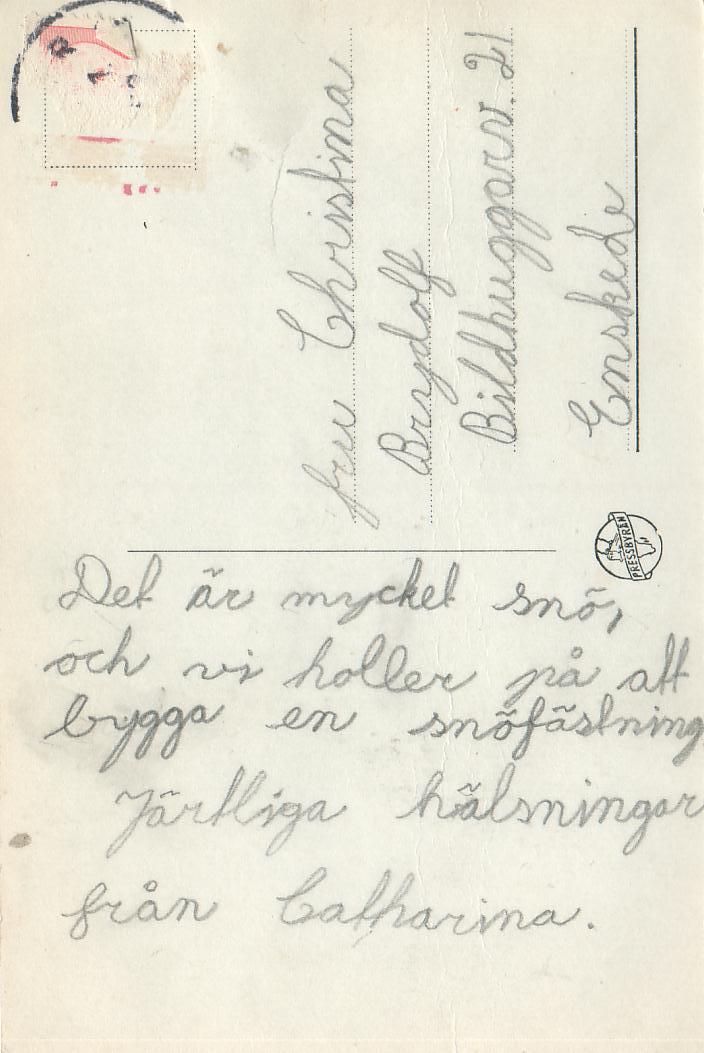 Det är mycket snö,
och vi holler på att
bygga en snöfästning
Järtliga hälsningar
från Catharina.
fru Christina
Brydolf
Bildhuggarv. 21
Enskede
PRESSBYRÅN